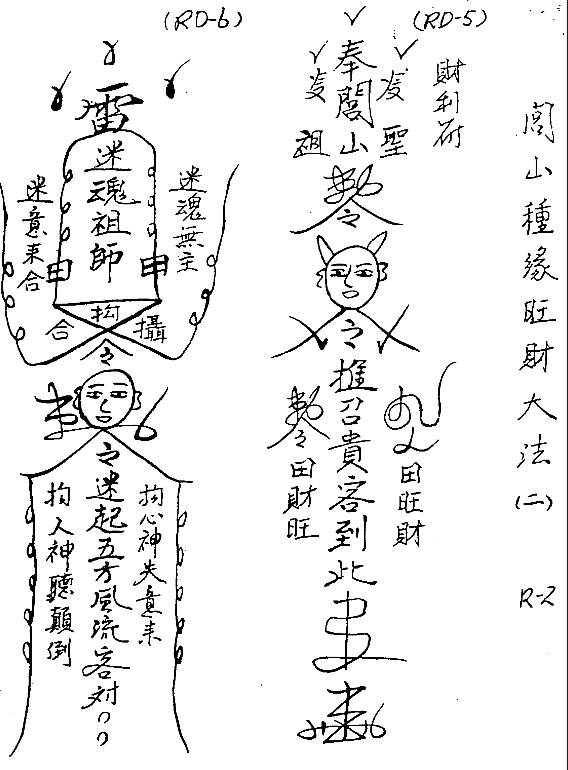 閭山種緣旺財大法(二)
R-2
(RD-5)
財利符
奉閭山
聖
祖
敕令
令推召貴客到此
田旺財
敕令田財旺
(RD-6)
雷
迷魂祖師
迷魂無主
迷意來合
田
田
拘
攝
合
令
令迷起五方風流客対
拘心神失意来
拘人神聽顛倒